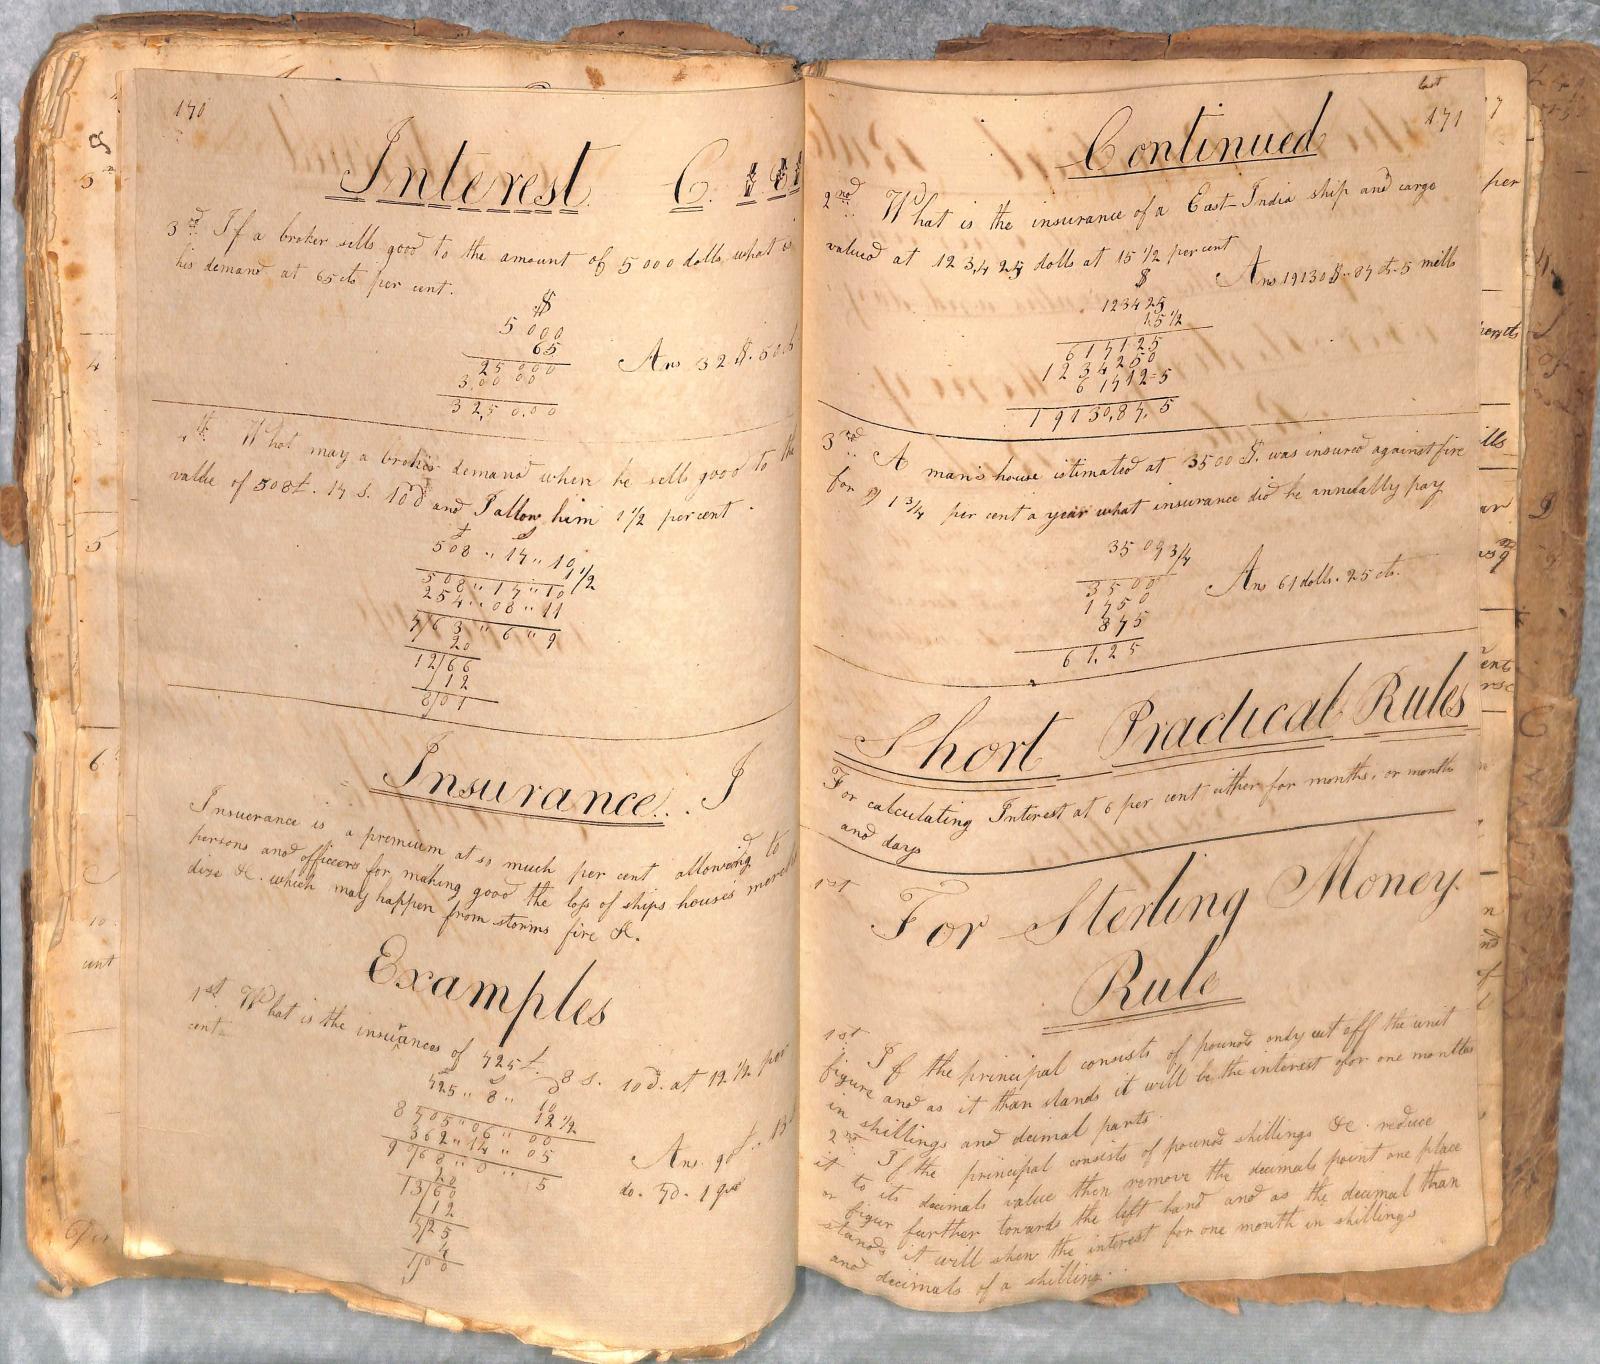 170
Interest C
3rd If a broker sells good to the amount of 5000 dolls, what is
his demand at 65 cts per cent.
$
5000
65
25000
30000
325 0.00
Ans 32 $. 50
What may a broker demand when he sells good to the
value of 508£. 17 s. 10d and I allow him 1 1/2 per cent.
508 " 17 " 10
1 1/2
508 " 17 " 10
254 " 08 " 11
7/63 " 6 " 9
20
12/66
12
8/01
Insurance. I
Insuerance is a premium at so much per cent allowing to
persons and officers for making good the loss of ships houses
dize &c. which may happen from storms fire &c.
Examples
1st What is the insurances of 725£. 8 s. 10d. at 12 1/2 per
cent
725 " 8 " 10
12 1/2
8705 " 06 " 00
362 " 14 " 05
9 068 " 0 " 5
20
13/60
12
7/25
4
1/00
Ans. 90£. 13
do. 7d. 1 qrs
last
171
Continued
2nd What is the insurance of a East India ship and cargo
valued at 123,425 dolls at 15 1/2 per cent
$
Ans 19130 $.. 87 ct. 5 mills
123425
15 1/2
617125
1234250
61712-5
19130,87.5
3rd A man's house istimated at 3500 $. was insured against fire
for 1 3/4 per cent a year what insurance did he annually pay
3500 3/4
3500
1750
875
61,25
Ans 61 dolls. 25 cts.
Short Practical Rules
For calculating Interest at 6 per cent either for months, or months
and days
1st
For Sterling Money
Rule
1st If the principal consists of pounds only cut off the unit
figure and as it than stands it will be the interest for one months
in shillings and decimal parts.
2nd If the principal consists of pounds shillings &c. reduce
it to its decimals value then remove the decimals point one place
or figur further towards the left hand and as the decimal than
stands it will shew the interest for one month in shillings
and decimals of a shilling.